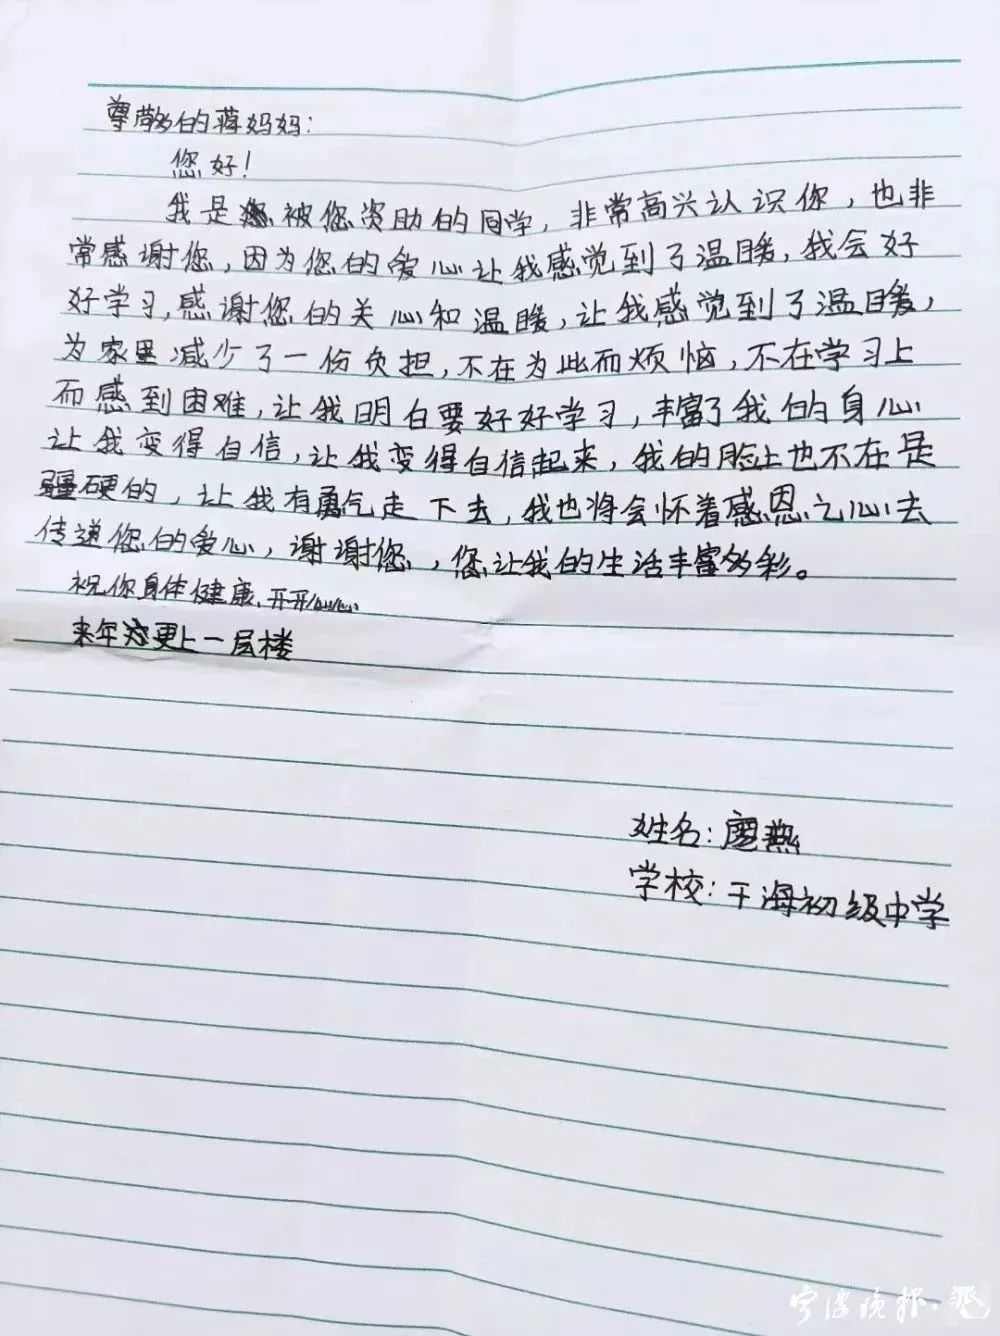 尊敬的蒋妈妈:
您好!
我是被您资助的同学，非常高兴认识你，也非
常感谢您，因为您的爱心让我感觉到了温暖，我会好
好学习，感谢您的关心和温暖，让我感觉到了温暖，
为家里减少了一份负担，不在为此而烦恼，不在学习上
而感到困难，让我明白要好好学习，丰富了我的身心
让我变得自信，让我变得自信起来，我的脸上也不在是
疆硬的，让我有勇气走下去，我也将会怀着感恩之心去
传递您的爱心，谢谢您，，您让我的生活丰富多彩。
祝你身体健康、开开心心
来年更上一层楼
姓名:廖燕
学校:干海初级中学
宁波晚报·